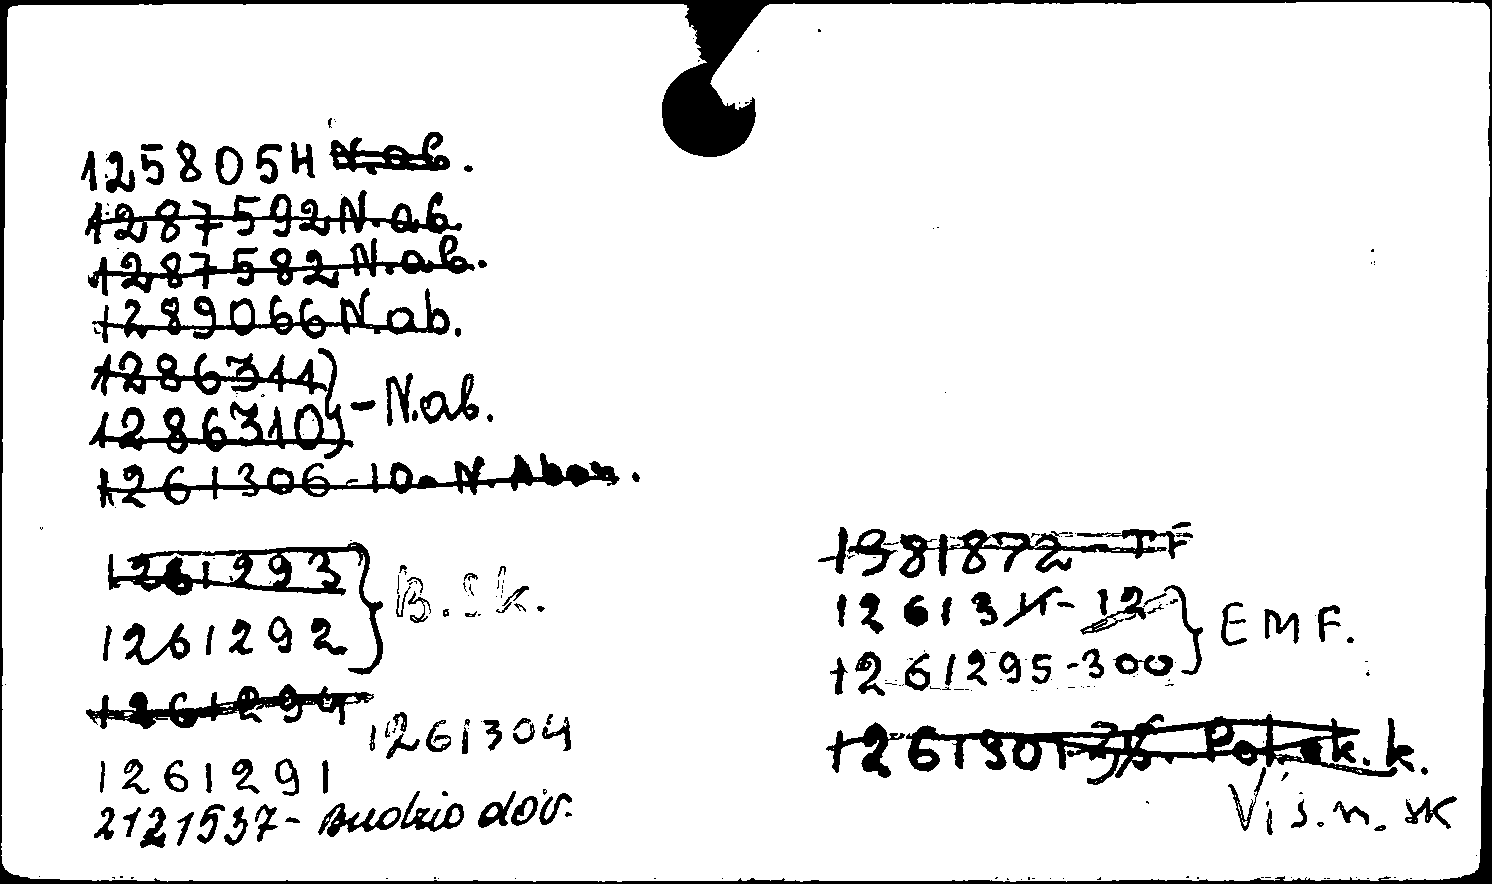 1258054 N.ab.
1287592 N.ab.
1287582 N.ab.
1289066 N.ab.
1286311
1286310 } - N.ab.
1261306-10-N.
1261293
1261292 } B.sk.
1261294
1261304
1261291
2121537- Budzio dov.
1981872-TF
126131 - 12
1261295-300 } EMF.
126130
Vis.n.sk